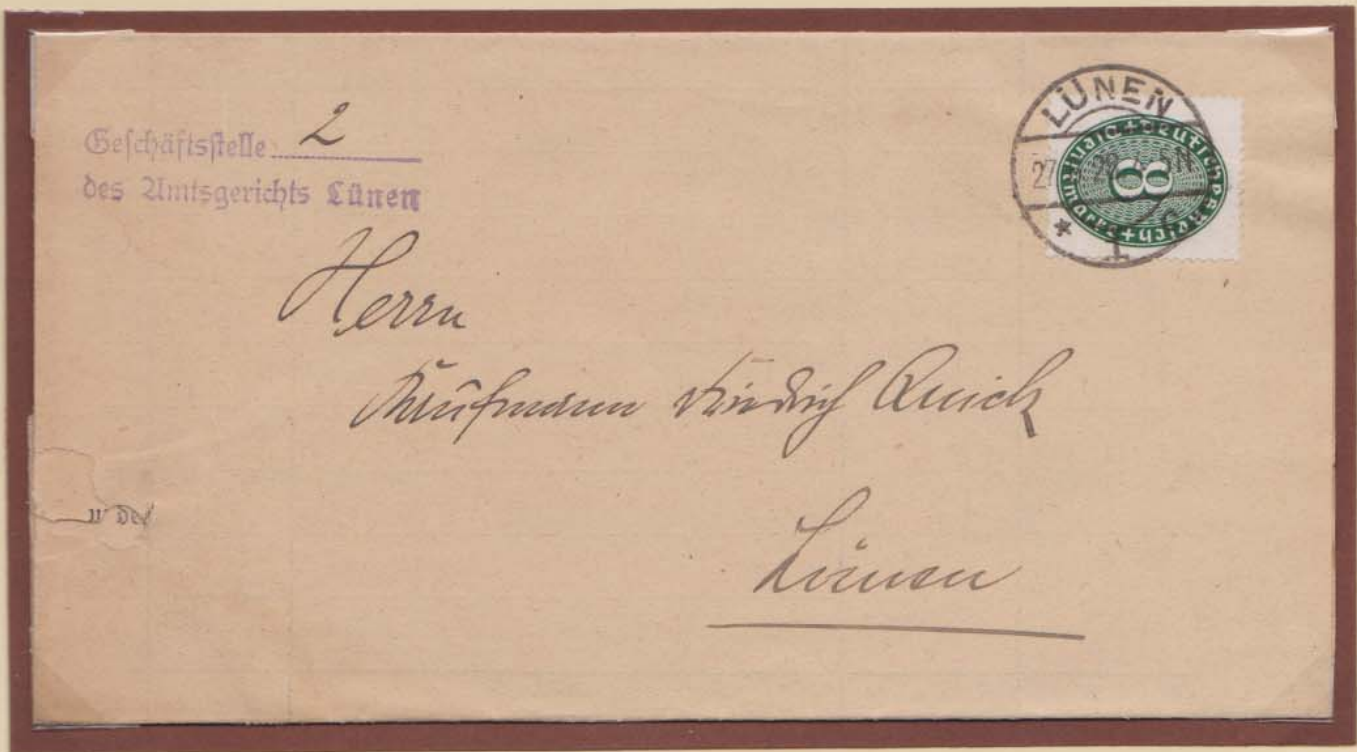 Geschäftsstelle 2
des Amtsgerichts Lünen
LÜNEN
27. 29. 4-5N
* 1 c
Deutsches Reich + Dienstmarke +
8
Herrn
Kaufmann Friedrich Quick
Lünen